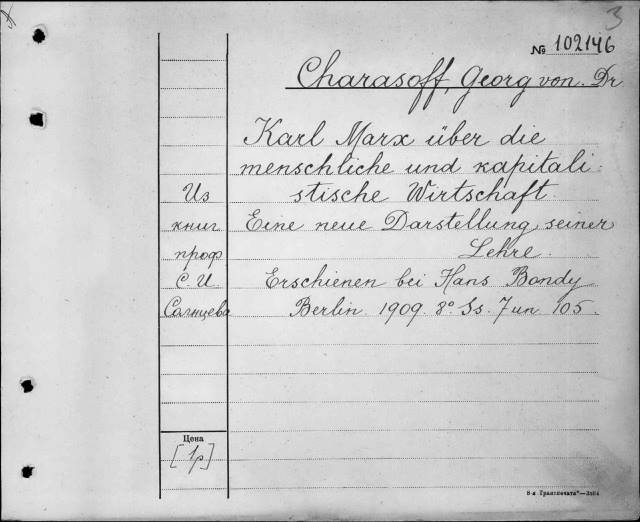 3
№ 102146
Charasoff, Georg von. Dr
Karl Marx über die
menschliche und kapitali-
stische Wirtschaft.
Eine neue Darstellung seiner
Lehre.
Erschienen bei Hans Bondy
Berlin. 1909. 8° Ss. 7 un. 105.
Из
книг
проф
С. И.
Солнцева
Цена
[1р]